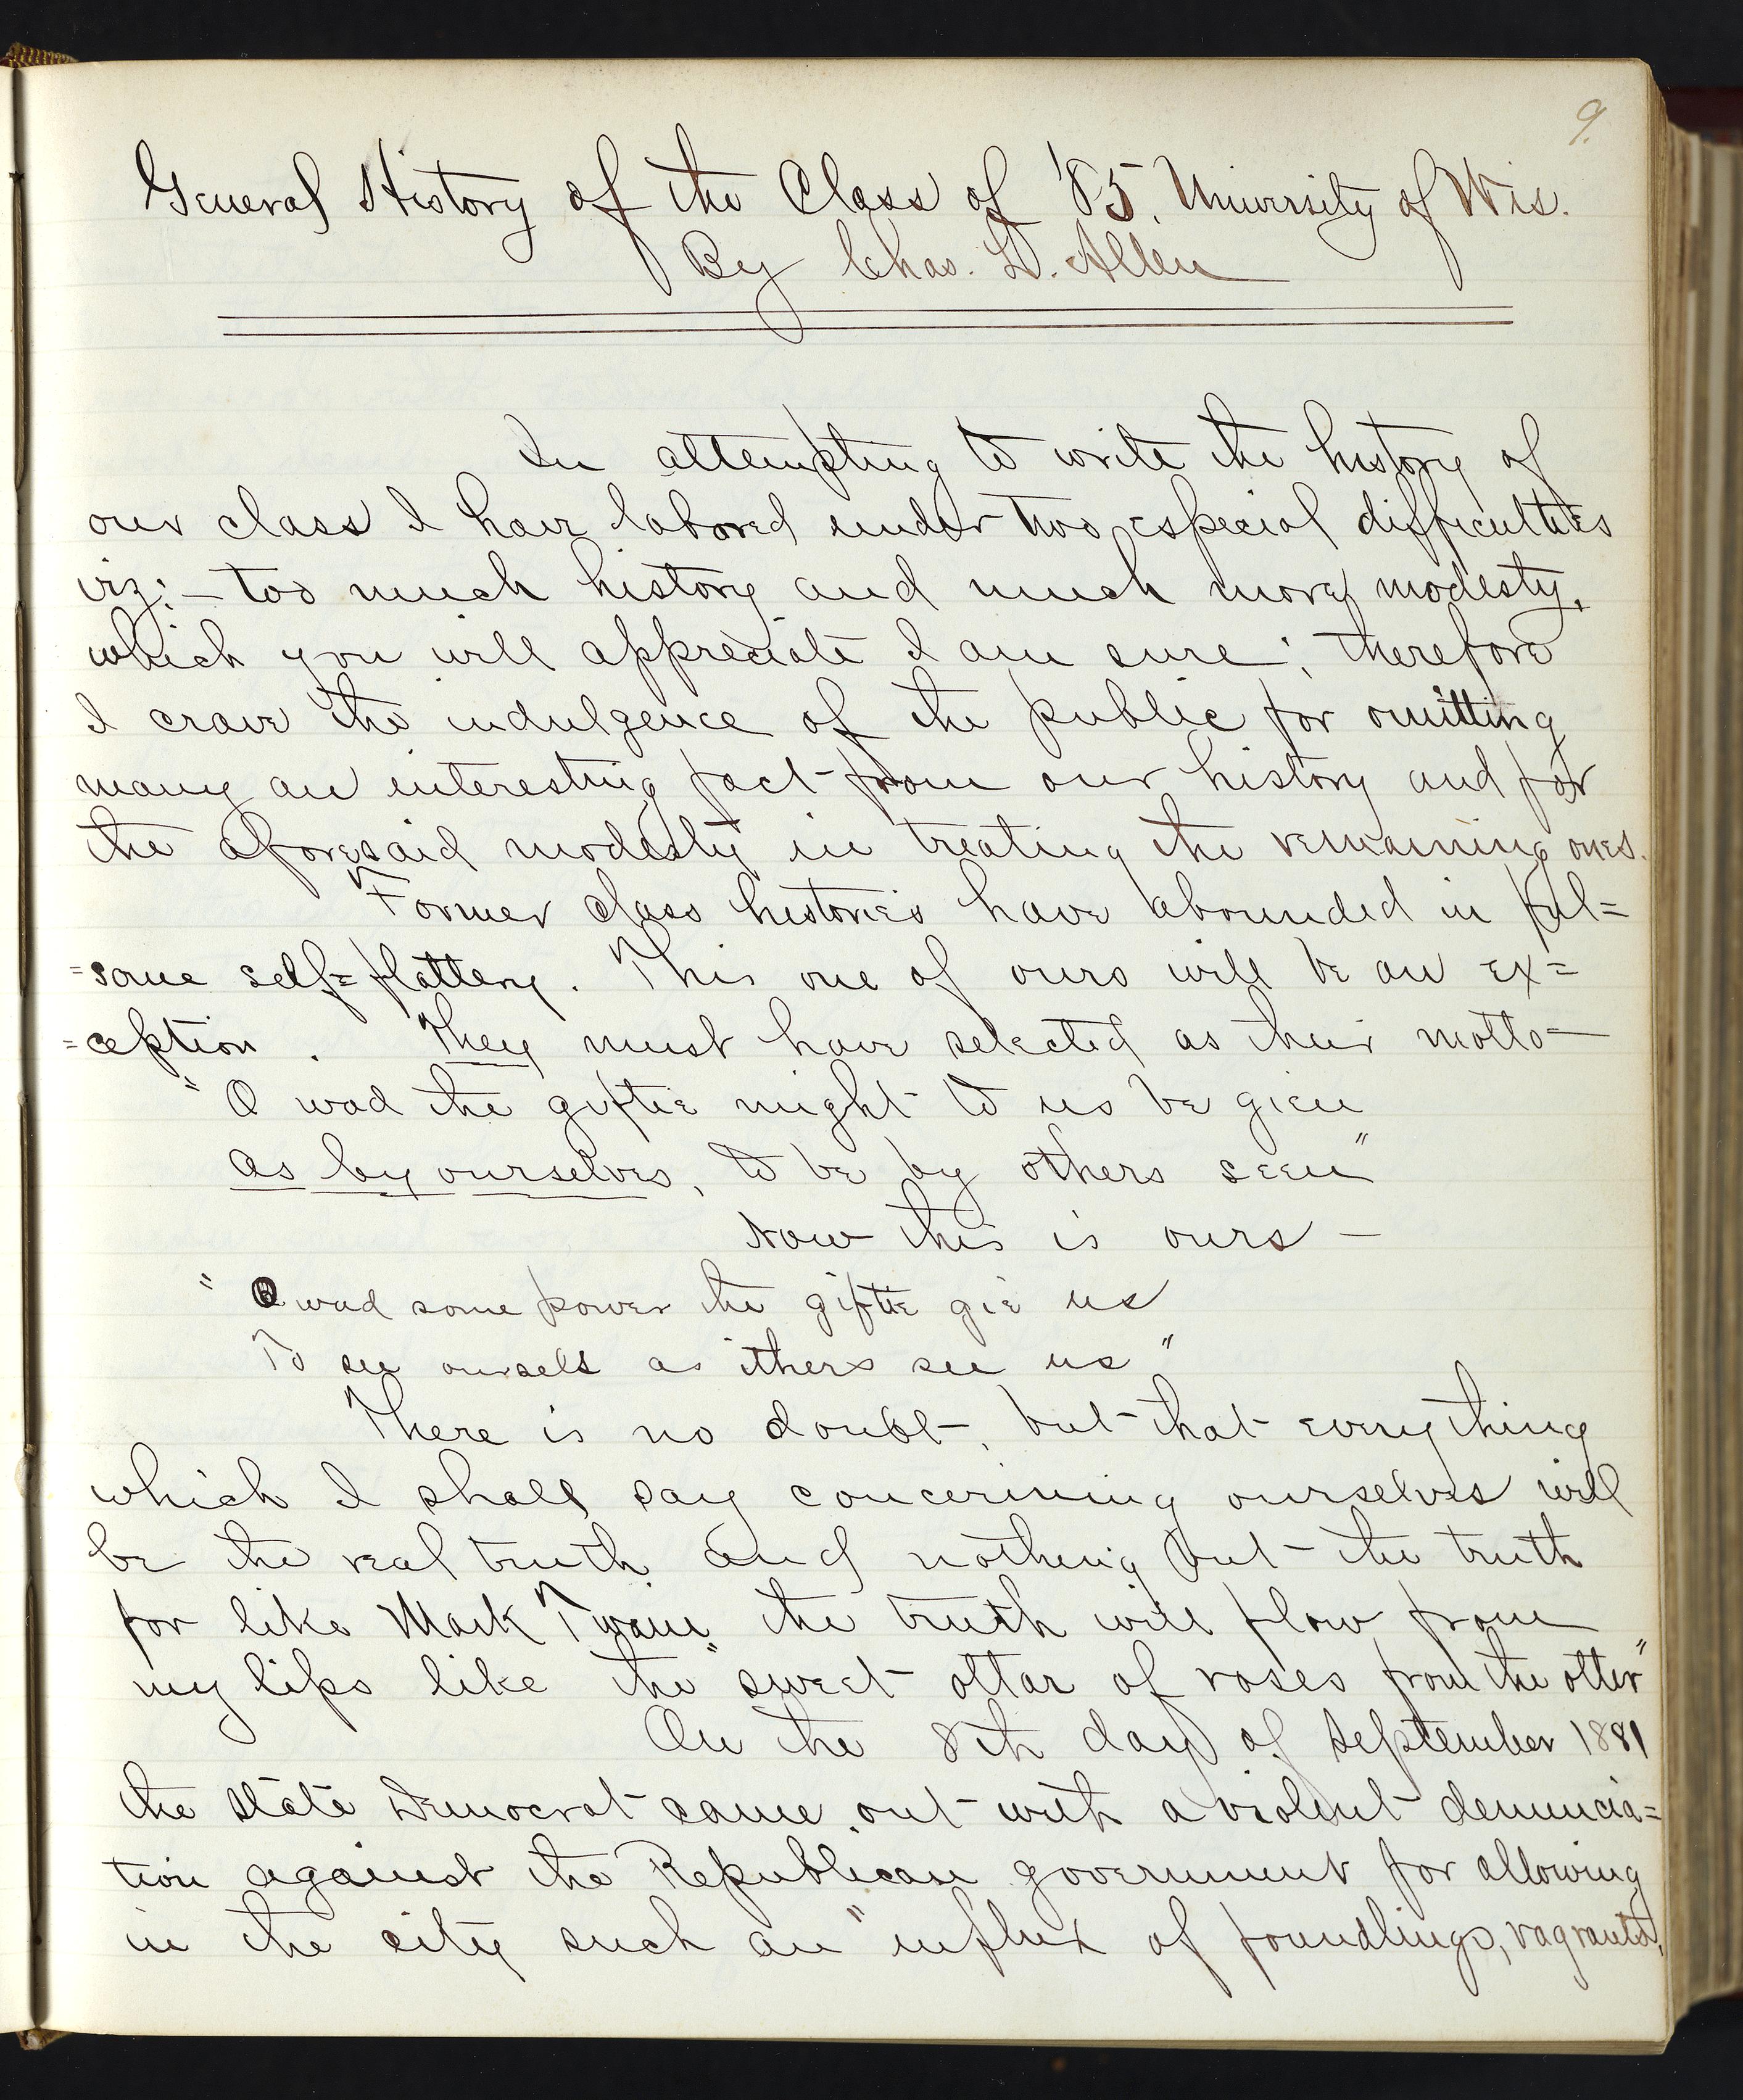 9.
General History of the Class of '85. University of Wis.
By Chas. L. Allen
In attempting to write the history of
our class I have labored under two especial difficulties
viz:— too much history and much more modesty,
which you will appreciate I am sure; therefore
I crave the indulgence of the public for omitting
many an interesting fact from our history and for
the aforesaid modesty in treating the remaining ones.
Former class histories have abounded in ful=
=some self=flattery. This one of ours will be an ex=
=ception. They must have selected as their motto—
"O wad the giftie might to us be gien
as by ourselves, to be by others seen"
Now this is ours —
"O wad some power the giftie gie us
To see oursels as ithers see us"
There is no doubt, but that everything
which I shall say concerining ourselves will
be the real truth and nothing but the truth
for like Mark Twain, the truth will flow from
my lips like the "sweet ottar of roses from the otter"
On the 8th day of September 1881
the State Democrat came out with a violent denuncia=
tion against the Republican government for allowing
in the city such an "influx of foundlings, vagrants,